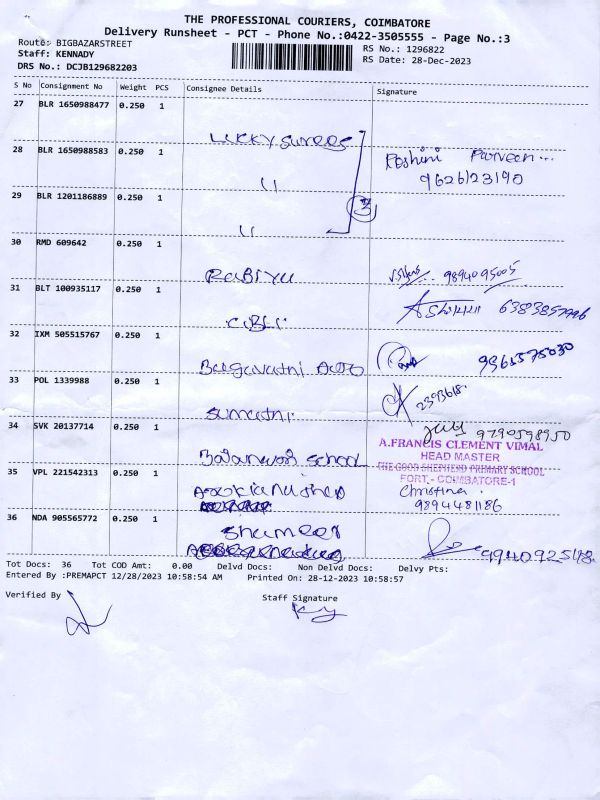 THE PROFESSIONAL COURIERS, COIMBATORE
Delivery Runsheet - PCT - Phone No.:0422-3505555 - Page No.:3
Route: BIGBAZARSTREET
RS No.: 1296822
Staff: KENNADY
RS Date: 28-Dec-2023
DRS No.: DCJB129682203
S No Consignment No Weight PCS Consignee Details Signature
27 BLR 1650988477 0.250 1
Lucky
28 BLR 1650988583 0.250 1
Roshini Parveen...
11
9626123190
29 BLR 1201186889 0.250 1
3
11
30 RMD 609642 0.250 1
Rabiyu
9894095005
31 BLT 100935117 0.250 1
6383857996
32 IXM 505515767 0.250 1
9361575030
Auto
33 POL 1339988 0.250 1
2393618
Sumathi
34 SVK 20137714 0.250 1
9790598950
A.FRANCIS CLEMENT VIMAL
HEAD MASTER
School
THE GOOD SHEPHERD PRIMARY SCHOOL
FORT,- COIMBATORE-1
35 VPL 221542313 0.250 1
Christina.
9894481186
36 NDA 905565772 0.250 1
Shameer
Tot Docs: 36 Tot COD Amt: 0.00 Delvd Docs: Non Delvd Docs: Delvy Pts:
Entered By :PREMAPCT 12/28/2023 10:58:54 AM Printed On: 28-12-2023 10:58:57
Verified By
Staff Signature